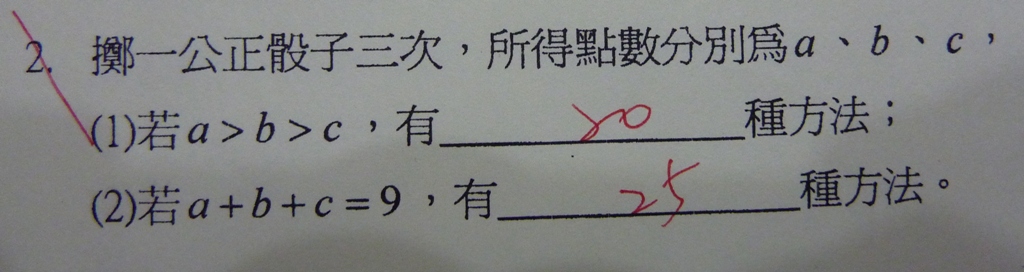 2. 擲一公正骰子三次，所得點數分別為a、b、c，
(1)若a>b>c，有 20 種方法；
(2)若a+b+c=9，有 25 種方法。